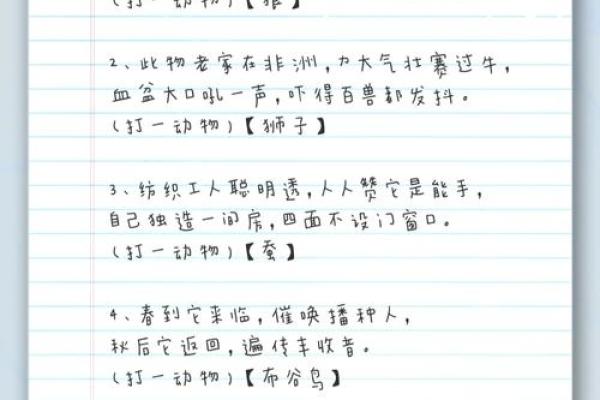 (打一动物)【狼】
2、此物老家在非洲，力大气壮赛过牛，
血盆大口吼一声，吓得百兽都发抖。
(打一动物)【狮子】
3、纺织工人聪明透，人人赞它是能手，
自己独造一间房，四面不设门窗口。
(打一动物)【蚕】
4、春到它来临，催唤播种人，
秋后它返回，遍传丰收音。
(打一动物)【布谷鸟】